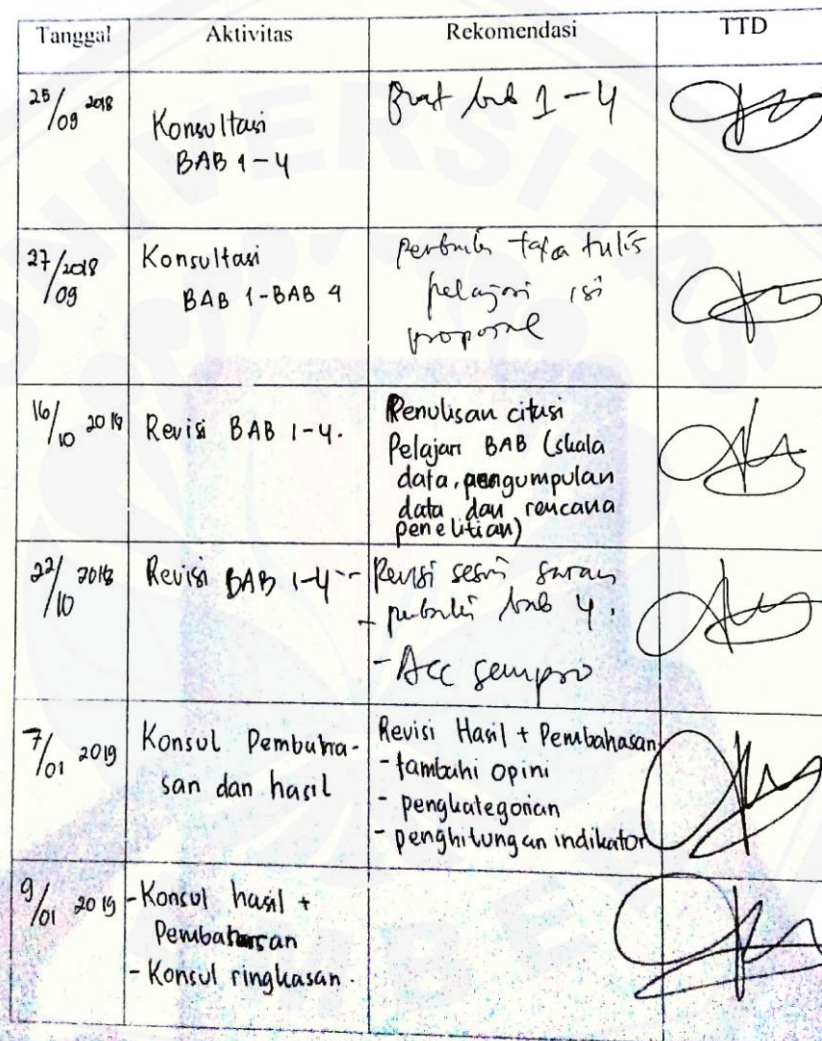 Tanggal Aktivitas Rekomendasi TTD
25/09 2018
Konsultasi
BAB 1-4
Buat bab 1-4
27/09 2018
Konsultasi
BAB 1-BAB 4
perbaiki tata tulis
pelajari isi
proposal
16/10 2018
Revisi BAB 1-4.
Penulisan citasi
Pelajari BAB (skala
data, pengumpulan
data dan rencana
penelitian)
22/10 2018
Revisi BAB 1-4
Revisi sesuai saran
- perbaiki bab 4.
- Acc sempro
7/01 2019
Konsul Pembaha-
san dan hasil
Revisi Hasil + Pembahasan
- tambahi opini
- pengkategorian
- penghitungan indikator
9/01 2019
- Konsul hasil +
Pembahasan
- Konsul ringkasan.
UNIVERSITAS